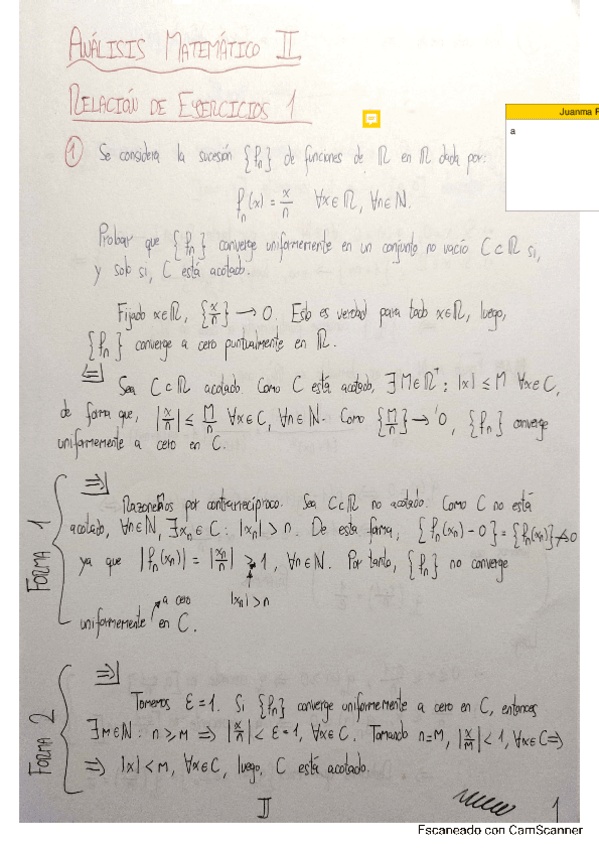 ANÁLISIS MATEMÁTICO II
RELACIÓN DE EJERCICIOS 1
Juanma F
a
① Se considera la sucesión {fₙ} de funciones de ℝ en ℝ dada por:
fₙ(x) = x/n ∀x∈ℝ, ∀n∈ℕ.
Probar que {fₙ} converge uniformemente en un conjunto no vacío C⊂ℝ si,
y solo si, C está acotado.
Fijado x∈ℝ, {x/n} → 0. Esto es verdad para todo x∈ℝ, luego,
{fₙ} converge a cero puntualmente en ℝ.
⇐] Sea C⊂ℝ acotado. Como C está acotado, ∃M∈ℝ⁺: |x| ≤ M ∀x∈C,
de forma que, |x/n| ≤ M/n ∀x∈C, ∀n∈ℕ. Como {M/n} → 0, {fₙ} converge
uniformemente a cero en C.
FORMA 1
⇒]
Razonemos por contrarrecíproco. Sea C⊂ℝ no acotado. Como C no está
acotado, ∀n∈ℕ, ∃xₙ∈C: |xₙ| > n. De esta forma, {fₙ(xₙ) - 0} = {fₙ(xₙ)} ↛ 0
ya que |fₙ(xₙ)| = |xₙ/n| > 1, ∀n∈ℕ. Por tanto, {fₙ} no converge
a cero |xₙ| > n
uniformemente en C.
FORMA 2
⇒]
Tomemos ε = 1. Si {fₙ} converge uniformemente a cero en C, entonces
∃m∈ℕ: n ≥ m ⇒ |x/n| < ε = 1, ∀x∈C. Tomando n=m, |x/m| < 1, ∀x∈C ⇒
⇒ |x| < m, ∀x∈C, luego, C está acotado.
II
1
Escaneado con CamScanner